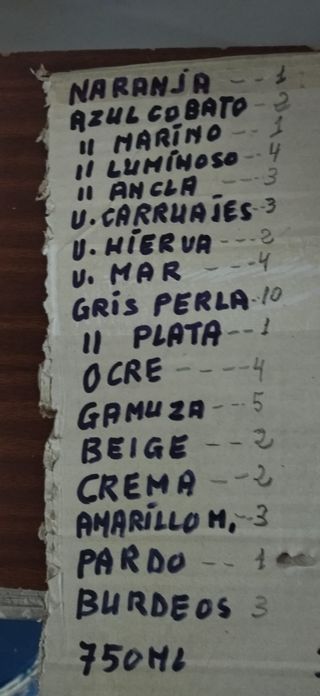 NARANJA -- 1
AZUL COBATO - 2
11 MARINO -- 1
11 LUMINOSO - 4
11 ANCLA --- 3
V. CARRUAJES - 3
V. HIERVA --- 2
V. MAR --- 4
GRIS PERLA - 10
11 PLATA -- 1
OCRE ---- 4
GAMUZA -- 5
BEIGE -- 2
CREMA -- 2
AMARILLO M. - 3
PARDO -- 1
BURDEOS 3
750ML